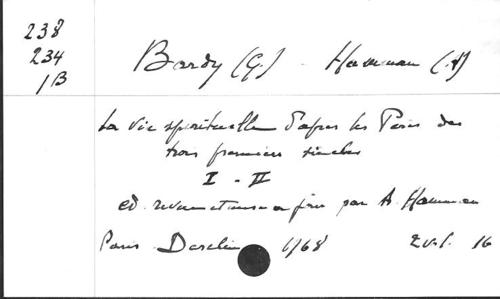 238
234
1B
Bardy (G.) - Hamman (A)
La vie spirituelle d'après les Pères des
trois premiers siècles
I - II
ed. revue et mise a jour par A. Hamman
Paris Desclée 1968 2 vol. 16